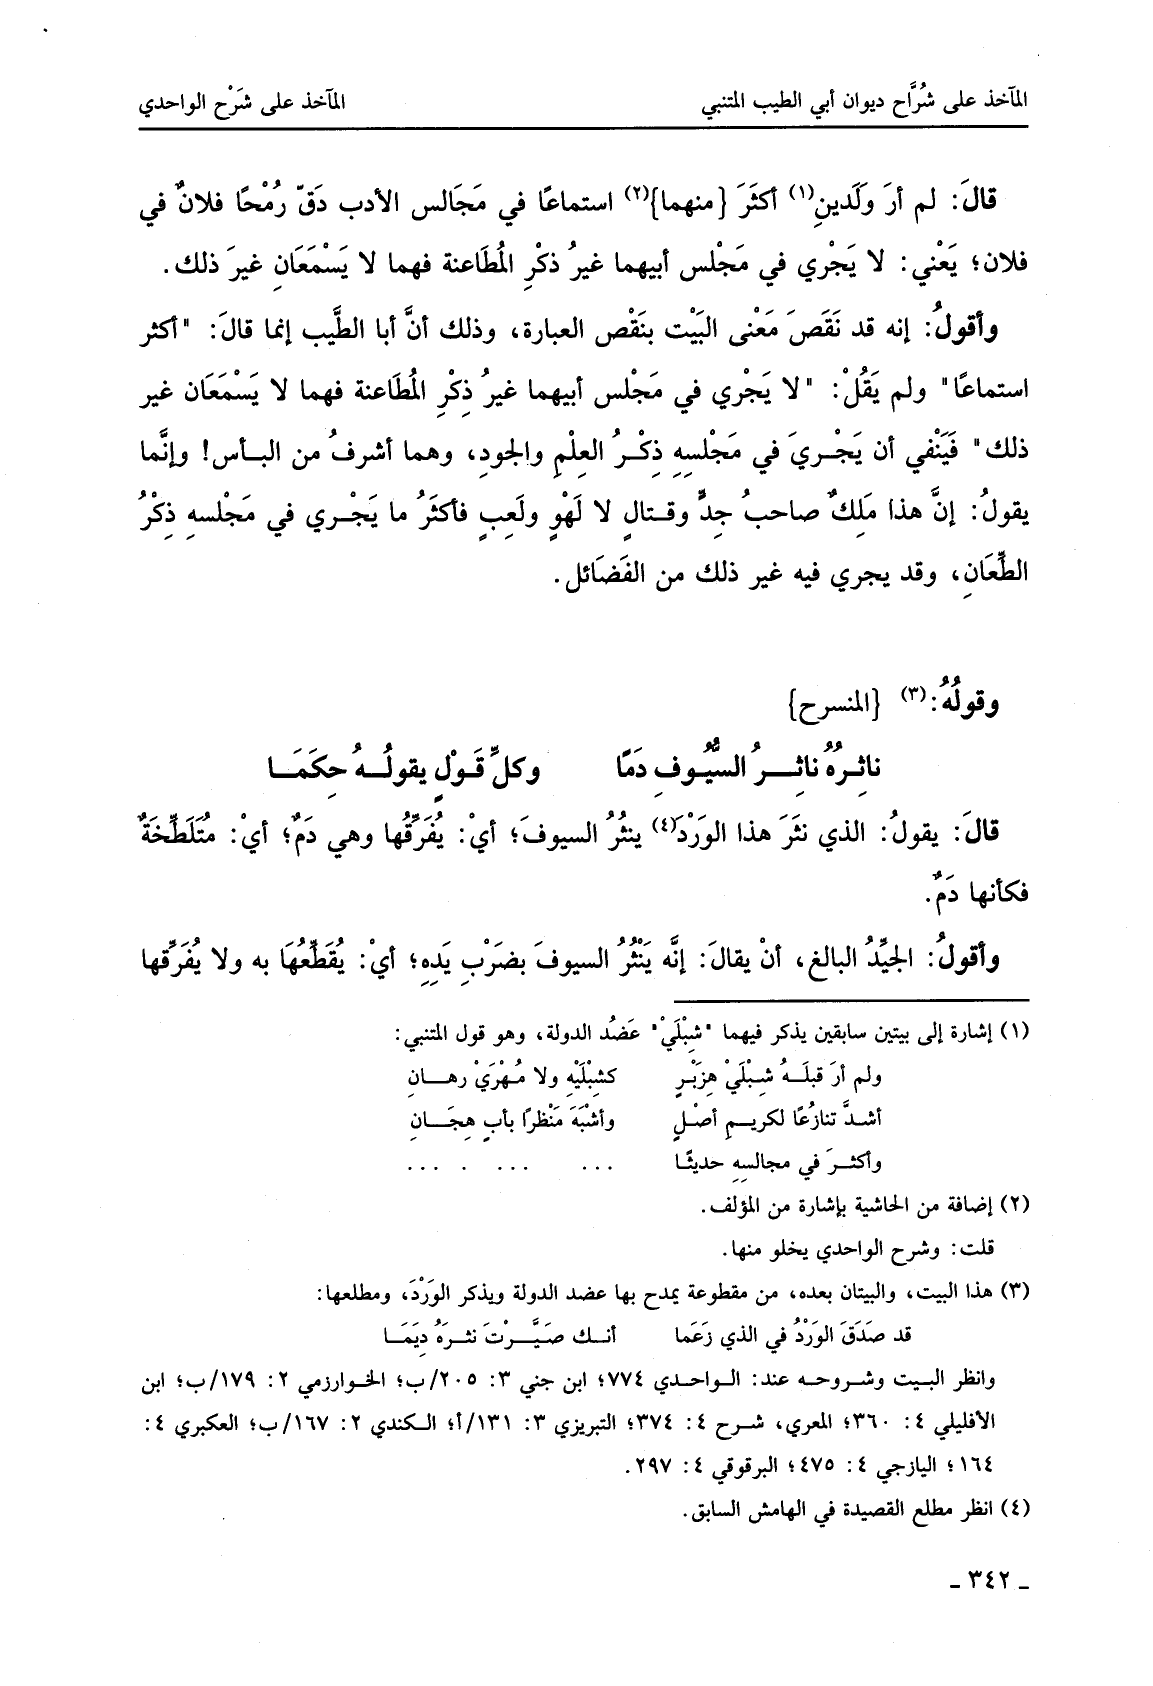 المآخذ على شُرَّاح ديوان أبي الطيب المتنبي
المآخذ على شَرْح الواحدي
قالَ: لم أرَ وَلَدينِ(١) أكثَرَ {منهما}(٢) استماعًا في مَجَالس الأدب دَقّ رُمْحًا فلانٌ في
فلان؛ يَعْني: لا يَجْري في مَجْلس أبيهما غيرُ ذكْرِ المُطَاعنة فهما لا يَسْمَعَانِ غيرَ ذلك.
وأقولُ: إنه قد نَقَصَ مَعْنى البَيْت بنَقْص العبارة، وذلك أنَّ أبا الطَّيب إنما قالَ: "أكثر
استماعًا" ولم يَقُلْ: "لا يَجْري في مَجْلس أبيهما غيرُ ذِكْرِ المُطَاعنة فهما لا يَسْمَعَان غير
ذلك" فَيَنْفي أن يَجْـريَ في مَجْلسِهِ ذِكْـرُ العِلْمِ والجودِ، وهما أشرفُ من البـأس! وإنَّما
يقولُ: إنَّ هذا مَلِكٌ صاحبُ جِدٍّ وقـتالٍ لا لَهْوٍ ولَعِبٍ فأكثَرُ ما يَجْـري في مَجْلسهِ ذِكْرُ
الطِّعَانِ، وقد يجري فيه غير ذلك من الفَضَائل.
وقولُهُ:(٣) {المنسرح}
ناثِرُهُ ناثِـــرُ السُّيُوفِ دَمًا وكلِّ قَـوْلٍ يقولُـهُ حِكَمَـا
قالَ: يقولُ: الذي نثَرَ هذا الوَرْدَ(٤) ينثُرُ السيوفَ؛ أيْ: يُفَرِّقُها وهي دَمٌ؛ أيْ: مُتَلَطِّخَةٌ
فكأنها دَمٌ.
وأقولُ: الجَيِّدُ البالغ، أنْ يقالَ: إنَّه يَنْثُرُ السيوفَ بضَرْبِ يَدِهِ؛ أيْ: يُقَطِّعُهَا به ولا يُفَرِّقها
(١) إشارة إلى بيتين سابقين يذكر فيهما "شِبْلَيْ" عَضُد الدولة، وهو قول المتنبي:
ولم أرَ قبلَـهُ شِـبْلَيْ هِزَبْـرٍ كشِبْلَيْهِ ولا مُـهْرَيْ رهـانِ
أشـدَّ تنازُعًا لكريـم أصْـلٍ وأشْبَهَ مَنْظرًا بأبٍ هِجَـانِ
وأكثـرَ في مجالسهِ حديثًـا ... ... . ...
(٢) إضافة من الحاشية بإشارة من المؤلف.
قلت: وشرح الواحدي يخلو منها.
(٣) هذا البيت، والبيتان بعده، من مقطوعة يمدح بها عضد الدولة ويذكر الوَرْدَ، ومطلعها:
قد صَدَقَ الوَرْدُ في الذي زَعَما أنـك صَيَّـرْتَ نثرَهُ دِيَمَـا
وانظر البـيت وشروحـه عند: الواحـدي ٧٧٤؛ ابن جني ٣: ٢٠٥/ب؛ الخـوارزمي ٢: ١٧٩/ب؛ ابن
الأفليلي ٤: ٣٦٠؛ المعري، شـرح ٤: ٣٧٤؛ التبريزي ٣: ١٣١/أ؛ الـكندي ٢: ١٦٧/ب؛ العكبري ٤:
١٦٤؛ اليازجي ٤: ٤٧٥؛ البرقوقي ٤: ٢٩٧.
(٤) انظر مطلع القصيدة في الهامش السابق.
ـ ٣٤٢ ـ